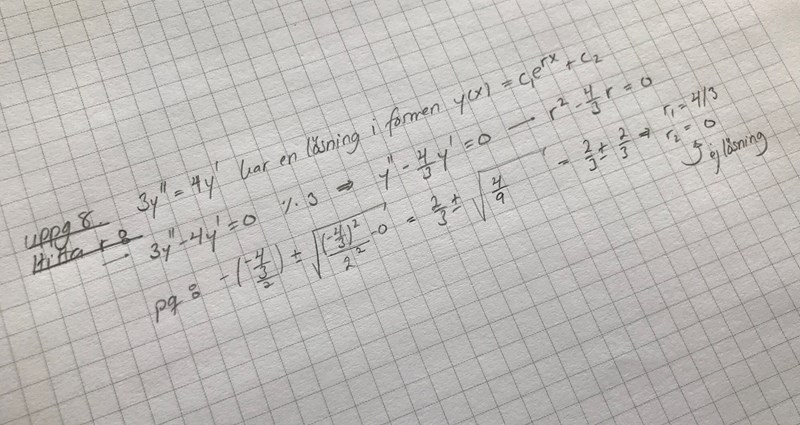 uppg 8. 3y'' = 4y' har en lösning i formen y(x) = C₁e^{rx} + C₂
Hitta r 8
→ 3y'' - 4y' = 0 ÷ 3 ⇒ y'' - 4/3 y' = 0 — r² - 4/3 r = 0
pq: -(-4/3 / 2) ± √((-4/3)² / 2² - 0) = 2/3 ± √(4/9) = 2/3 ± 2/3 ⇒ r₁ = 4/3
r₂ = 0
ej lösning